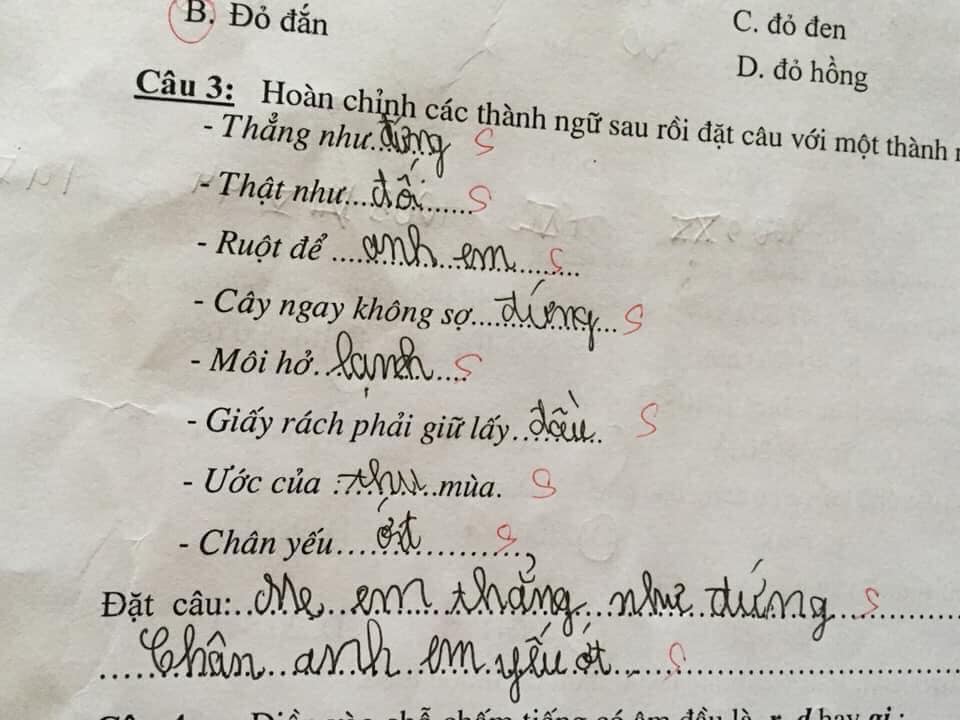 B. Đỏ đắn
C. đỏ đen
D. đỏ hồng
Câu 3: Hoàn chỉnh các thành ngữ sau rồi đặt câu với một thành
- Thẳng như..đứng S
- Thật như...đối...... S
- Ruột để ....anh em....... S
- Cây ngay không sợ...đứng... S
- Môi hở..lạnh.... S
- Giấy rách phải giữ lấy..đầu.. S
- Ước của .thu..mùa. S
- Chân yếu....ớt........... S
Đặt câu:..Mẹ em thẳng như đứng... S
.....Chân anh em yếu ớt.... S